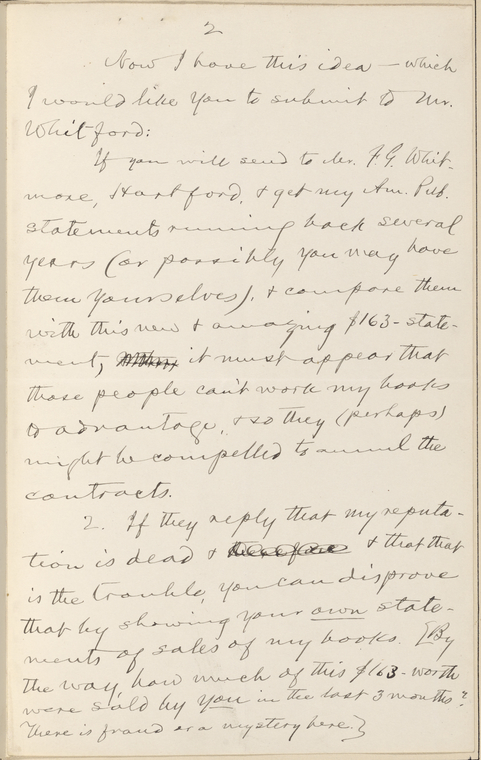 2
Now I have this idea — which
I would like you to submit to Mr.
Whitford:
If you will send to Mr. F. G. Whit-
more, Hartford, & get my Am. Pub.
statements running back several
years (or possibly you may have
them yourselves), & compare them
with this new & amazing $163-state-
ment, it must appear that
those people can't work my books
to advantage, & so they (perhaps)
might be compelled to annul the
contracts.
2. If they reply that my reputa-
tion is dead & & that that
is the trouble, you can disprove
that by showing your own state-
ments of sales of my books. [By
the way, how much of this $163-worth
were sold by you in the last 3 months?
There is fraud or a mystery here.]